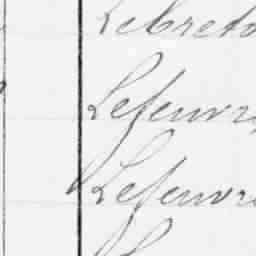 Lebreto
Lefeuvr
Lefeuvr